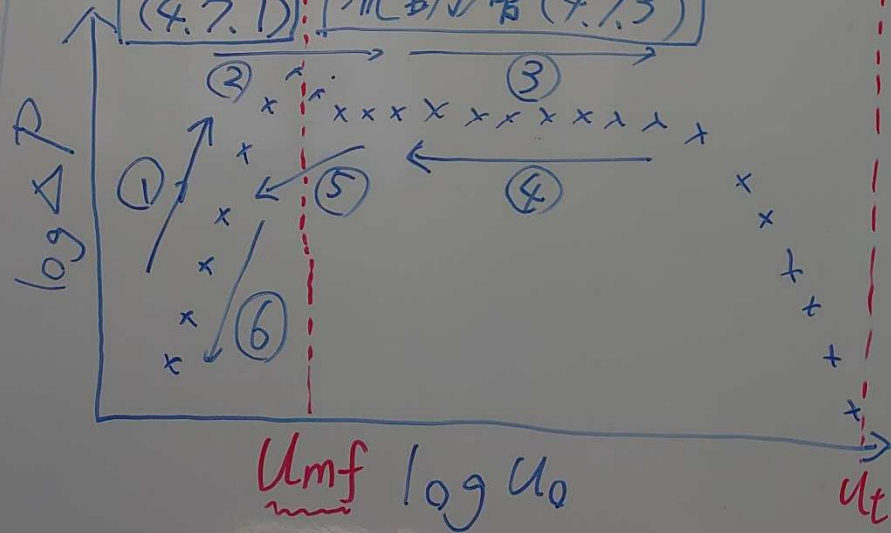 (4.7.1)
流動層 (4.7.3)
②
③
①
⑤
④
⑥
log ΔP
Umf
log U₀
Ut